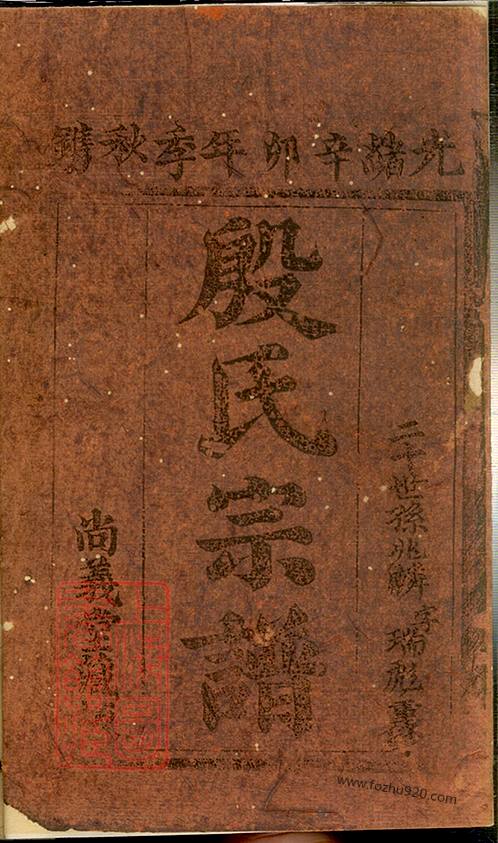 光緒辛卯年季秋鐫
二十世孫兆麟字瑞彪
殷氏宗譜
尚義堂藏
www.fozhu920.com